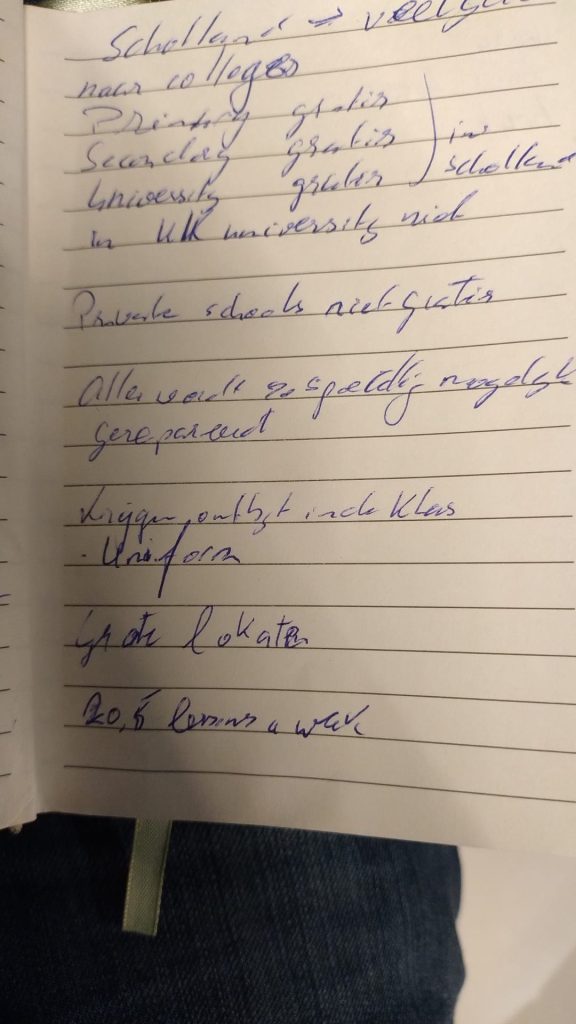 Scholland → veel
naar colleges
Primary gratis
Secondary gratis } in
University gratis } scholland
in UK university niet
Private schools niet gratis
Alles wordt zo spoedig mogelijk
gerepareerd
krijgen ontbijt in de klas
- Uniform
Grote lokalen
20,5 lessons a week